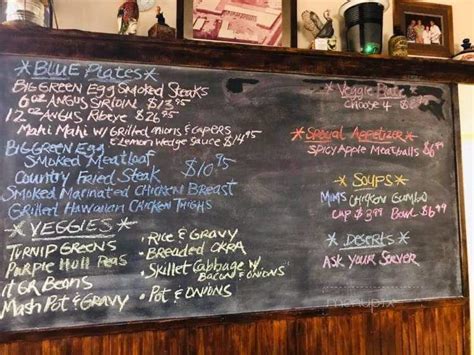 *BLUE Plates*
BIG GREEN Egg SMOKED STEAKS
6 oz ANGUS SIRLOIN $13.95
12 oz ANGUS RIBEYE $26.95
MAHI MAHI w/ GRILLED ONIONS & CAPERS
& LEMON WEDGE SAUCE $14.95
BIG GREEN Egg
SMOKED MEATLOAF
COUNTRY FRIED STEAK $10.95
SMOKED MARINATED CHICKEN BREAST
GRILLED HAWAIIAN CHICKEN THIGHS
*VEGGIES*
TURNIP GREENS
PURPLE Hull PEAS
GR BEANS
MASH POT & GRAVY
• RICE & GRAVY
• BREADED OKRA
• SKILLET CABBAGE w/
BACON & ONIONS
• POT & ONIONS
* Veggie Plate *
CHOOSE 4
* Special Appetizer *
SPICY APPLE MEATBALLS $6.99
* SOUPS *
MIMS CHICKEN GUMBO
CUP $3.99 BOWL $6.99
* DESERTS *
ASK YOUR SERVER